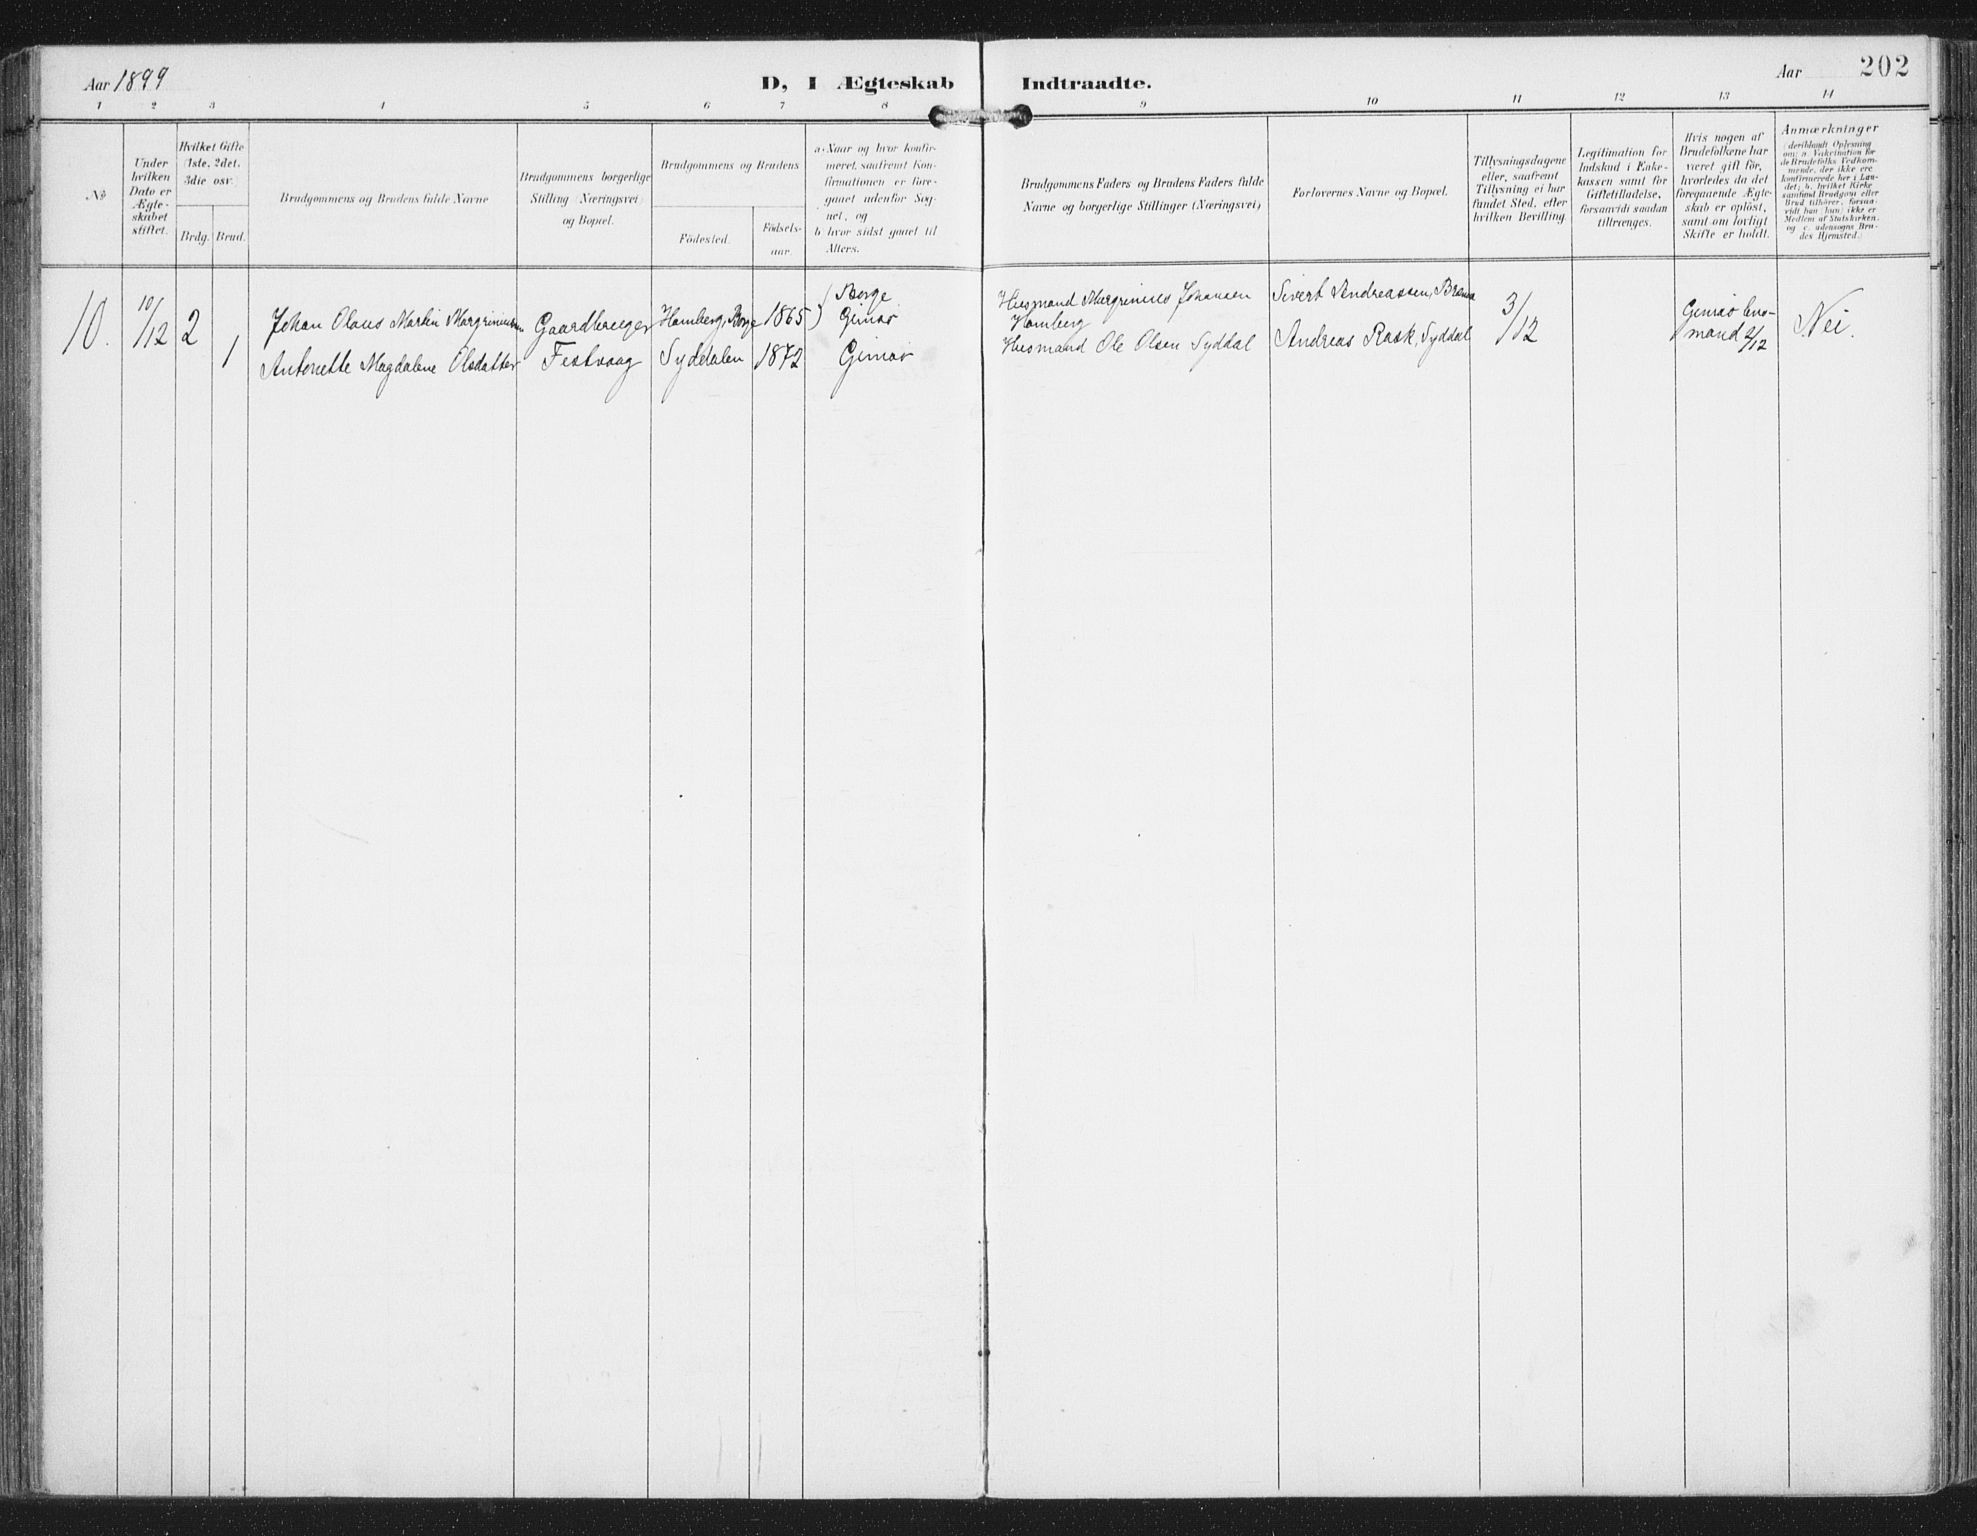 Aar 1899
D, I Ægteskab Indtraadte.
Aar 202
1 2 3 4 5 6 7 8 9 10 11 12 13 14
No
Under
hvilken
Dato er
Ægte-
skabet
stiftet.
Hvilket Gifte
(1ste, 2det,
3die osv.)
Brdg. Brud.
Brudgommens og Brudens fulde Navne
Brudgommens borgerlige
Stilling (Næringsvei)
og Bopæl.
Brudgommens og Brudens
Födested.
Födsels-
aar.
a. Naar og hvor konfir-
meret, saafremt Kon-
firmationen er fore-
gaaet udenfor Sog-
net, og
b. hvor sidst gaaet til
Alters.
Brudgommens Faders og Brudens Faders fulde
Navne og borgerlige Stillinger (Næringsvei)
Forlovernes Navne og Bopæl.
Tillysningsdagene
eller, saafremt
Tillysning ei har
fundet Sted, efter
hvilken Bevilling.
Legitimation for
Indskud i Enke-
kassen samt for
Giftetilladelse,
forsaavidt saadan
tiltrænges.
Hvis nogen af
Brudefolkene har
været gift för,
hvorledes da det
foregaaende Ægte-
skab er oplöst,
samt om lovligt
Skifte er holdt.
Anmærkninger
(deriblandt Oplysning
om: a. Vakcination for
de Brudefolks Vedkom-
mende, der ikke ere
konfirmerede her i Lan-
det; b. hvilket Kirke-
samfund Brudgom eller
Brud tilhörer, forsaa-
vidt han (hun) ikke er
Medlem af Statskirken,
og c. udensogns Bru-
des Hjemsted.
10. 10/12 2 Johan Olaus Martin Margrinussen Gaardbruger Hamberg, Borge 1865 ) Borge
Gimsø
Husmand Margrinus Johansen
Hamberg
Sivert Andreassen,
3/12
Gimsø
mand 2/12
Nei.
1 Antonette Magdalene Olsdatter Festvaag Syddalen 1872 Gimsø
Husmand Ole Olsen Syddal
Andreas Rask, Syddal